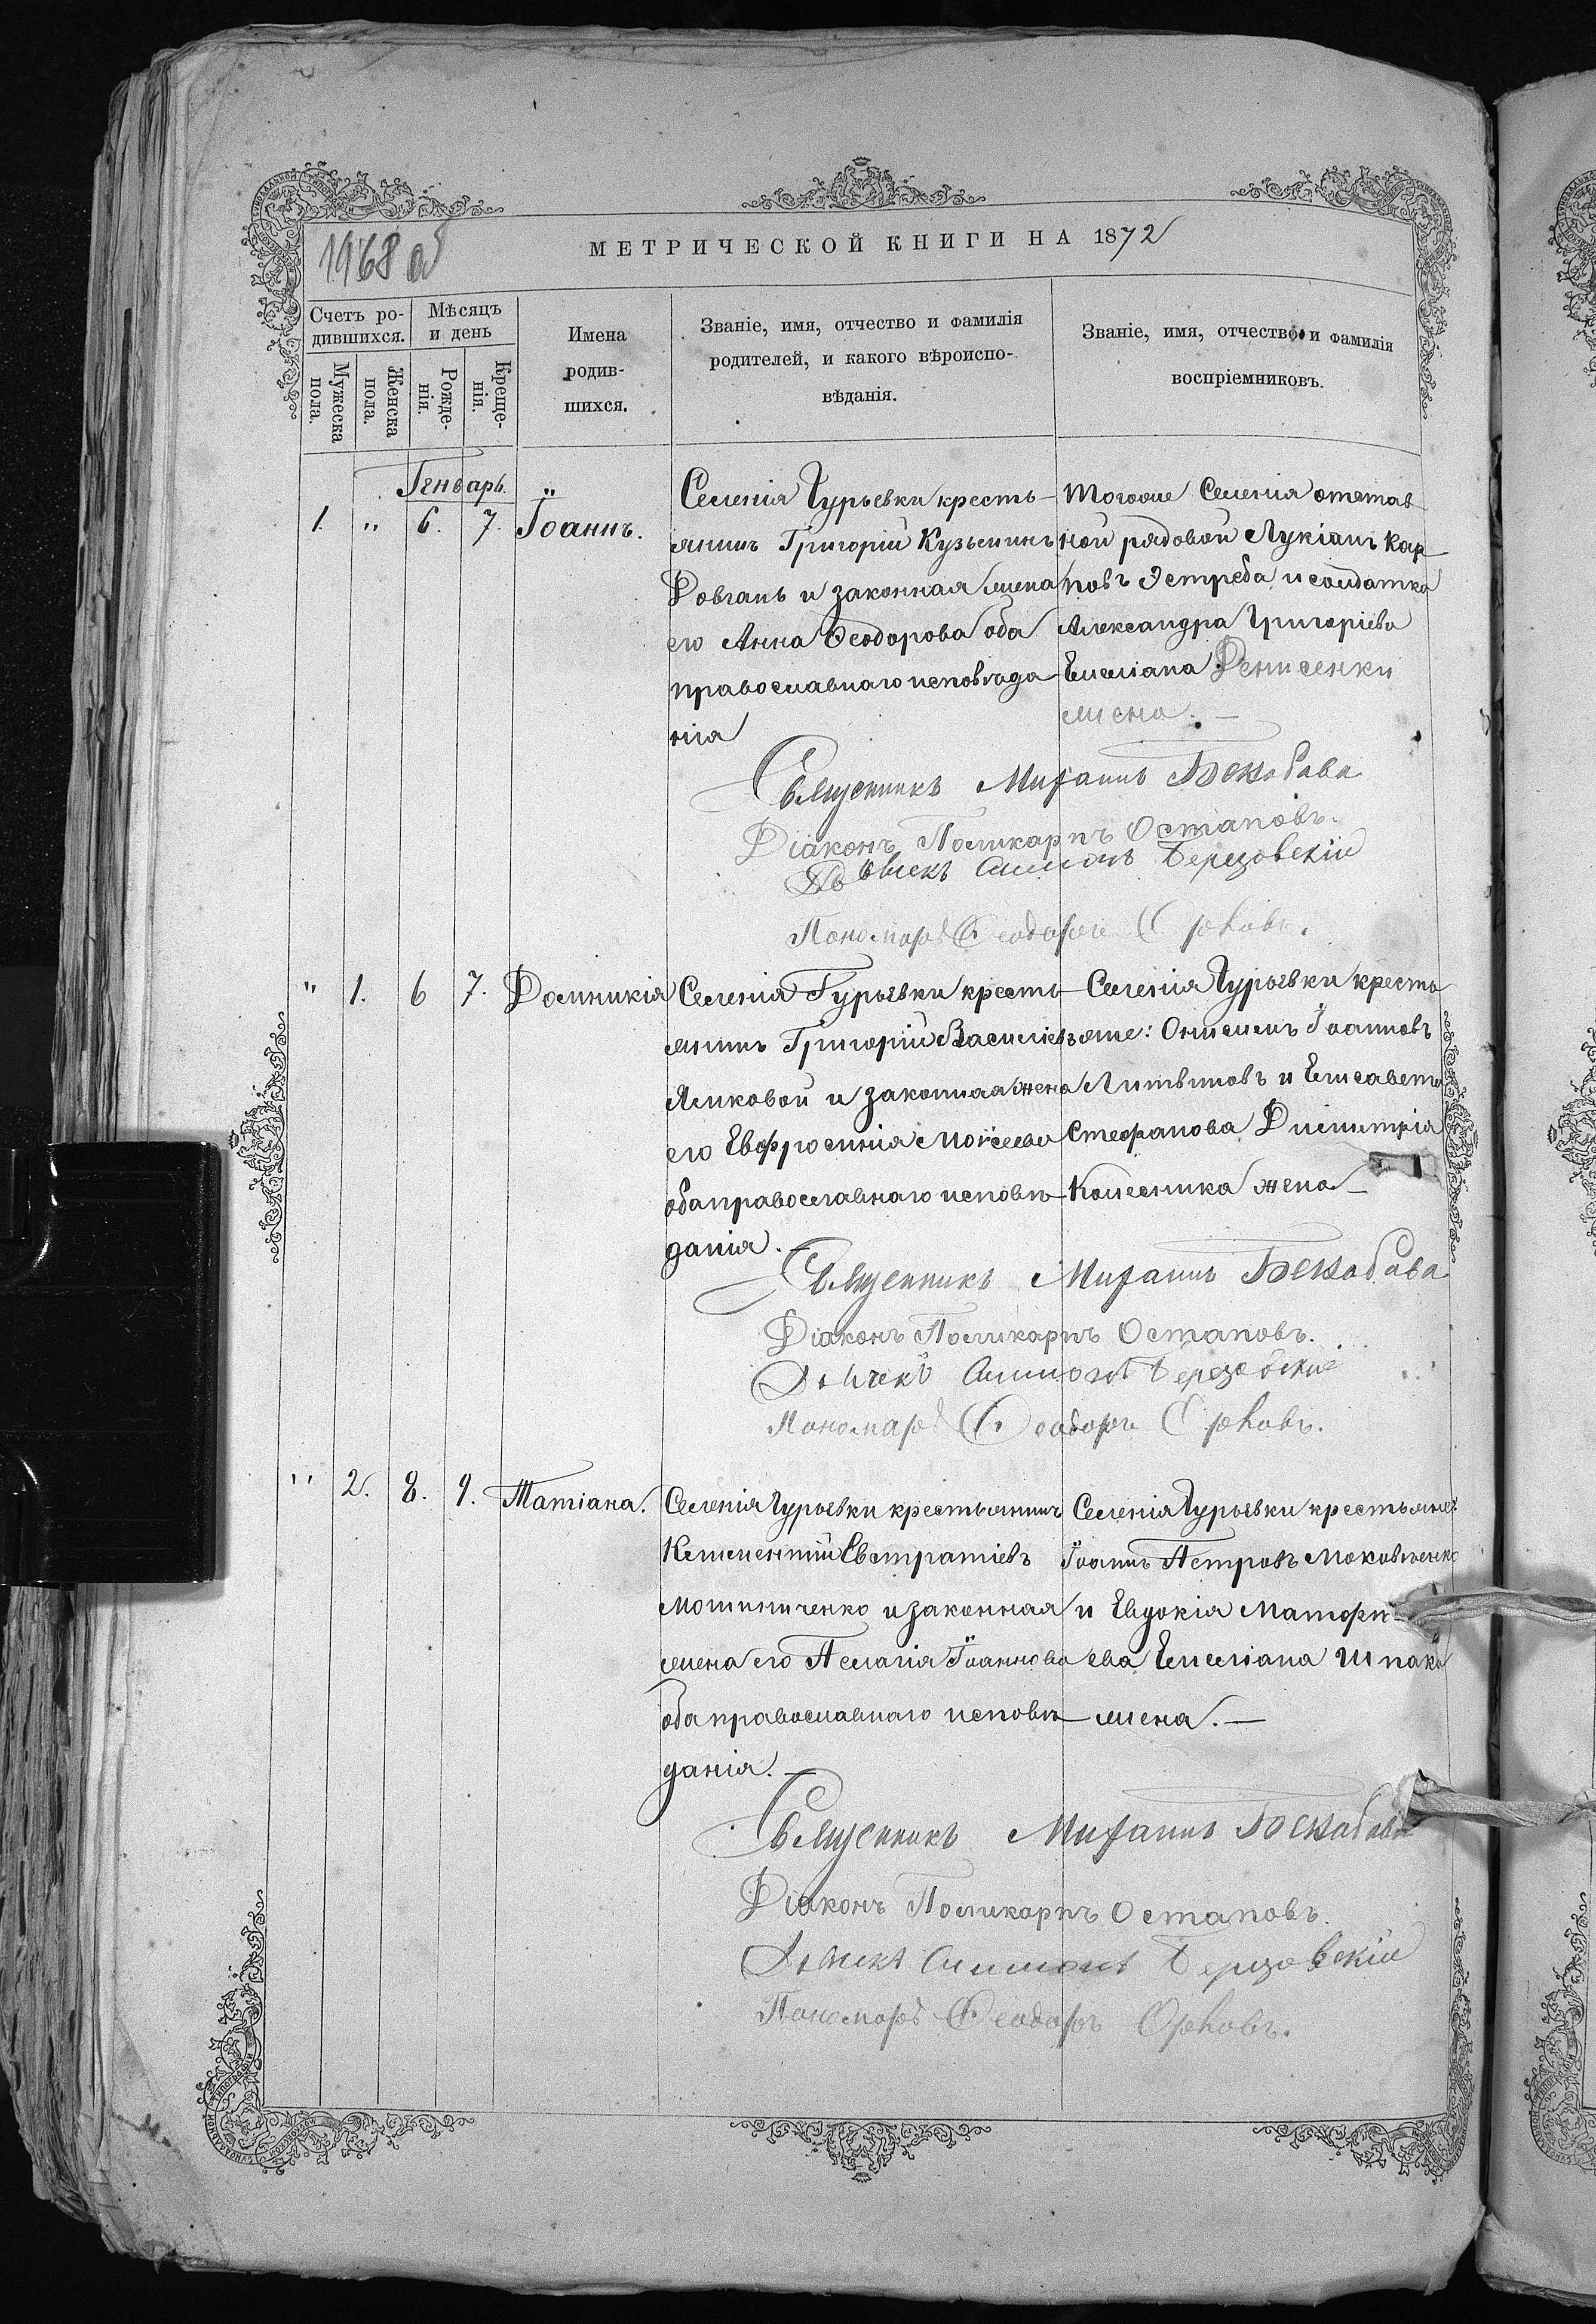 1968 об
МЕТРИЧЕСКОЙ КНИГИ НА 1872
Счетъ ро-
дившихся.
Мѣсяцъ
и день
Мужеска
пола.
Женска
пола.
Рожде-
нія.
Креще-
нія.
Имена
родив-
шихся.
Званіе, имя, отчество и фамилія
родителей, и какого вѣроиспо-
вѣданія.
Званіе, имя, отчество и фамилія
воспріемниковъ.
Генварь.
1. " 6. 7. Іоаннъ.
Селенія Гурьевки кресть-
янинъ Григорій Кузьминъ
Довгань и законная жена
его Анна Ѳеодорова оба
православнаго исповѣда-
нія
Тогоже Селенія отстав-
ной рядовой Лукіанъ Кар-
повъ Ястреба и солдатка
Александра Григоріева
Емеліана Денисенки
жена. —
Священникъ Михаилъ
Діаконъ Поликарпъ Остаповъ.
Дьячекъ Симонъ Березовскій
Пономарь Ѳеодоръ
" 1. 6 7. Домникія
Селенія Гурьевки кресть-
янинъ Григорій Василіевъ
Яликовой и законная жена
его Евфросинія Моисеева
оба православнаго исповѣ-
данія.
Селенія Гурьевки кресть-
яне: Онисимъ Іоанновъ
Литвиновъ и Елисавета
Стефанова Димитрія
Колесника жена —
Священникъ Михаилъ
Діаконъ Поликарпъ Остаповъ.
Дьячекъ Симонъ Березовскій
Пономарь Ѳеодоръ
" 2. 8. 9. Татіана.
Селенія Гурьевки крестьянинъ
Климентій Евстратіевъ
и законная
жена его Пелагія Іоаннова
оба православнаго исповѣ-
данія. —
Селенія Гурьевки крестьяне:
Іоаннъ Петровъ
и Евдокія Матѳи-
ева Емеліана Шпака
жена. —
Священникъ Михаилъ
Діаконъ Поликарпъ Остаповъ.
Дьячекъ Симонъ Березовскій
Пономарь Ѳеодоръ